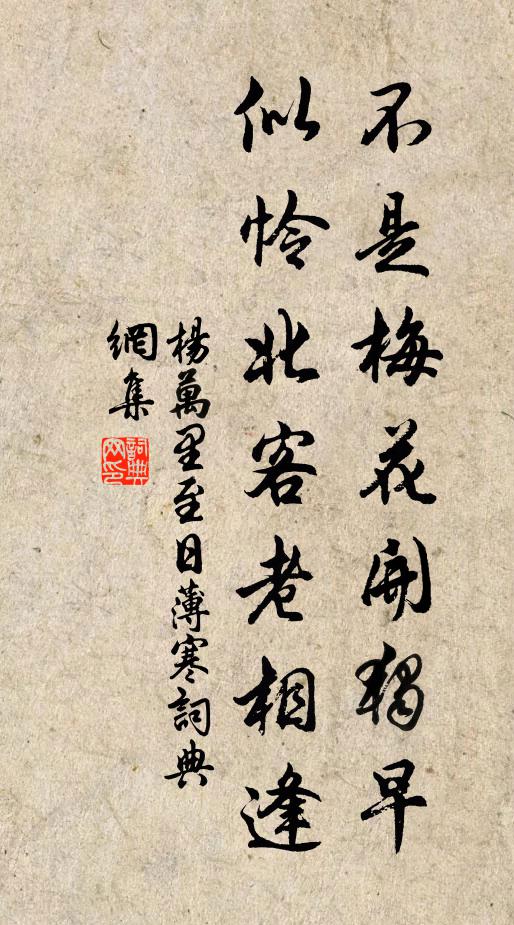 不是梅花開獨早
似怜北客老相逢
楊萬里至日薄寒詞典
網集
詞典
网印